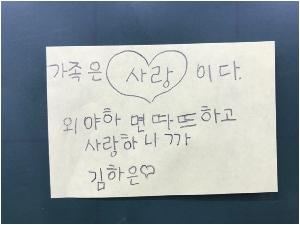 가족은 사랑 이다.
외야하면 따뜨하고
사랑하니ㄲㅏ
김하은♡